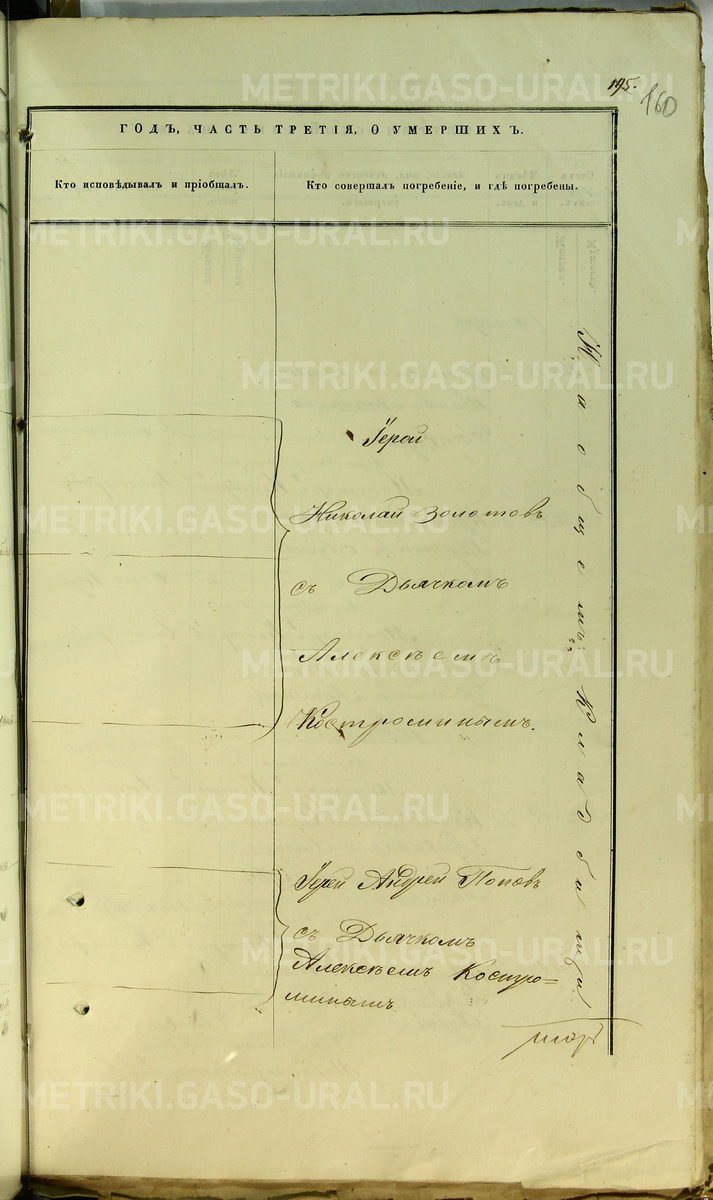 195.
160
ГОДЪ, ЧАСТЬ ТРЕТІЯ, О УМЕРШИХЪ.
Кто исповѣдывалъ и пріобщалъ.
Кто совершалъ погребеніе, и гдѣ погребены.
Іерей
Николай Золотовъ
съ Дьячкомъ
Алексѣемъ
Костроминымъ.
Іерей Андрей Поповъ
съ Дьячкомъ
Алексѣемъ Костро=
минымъ
На общемъ Кладбищѣ
METRIKI.GASO-URAL.RU